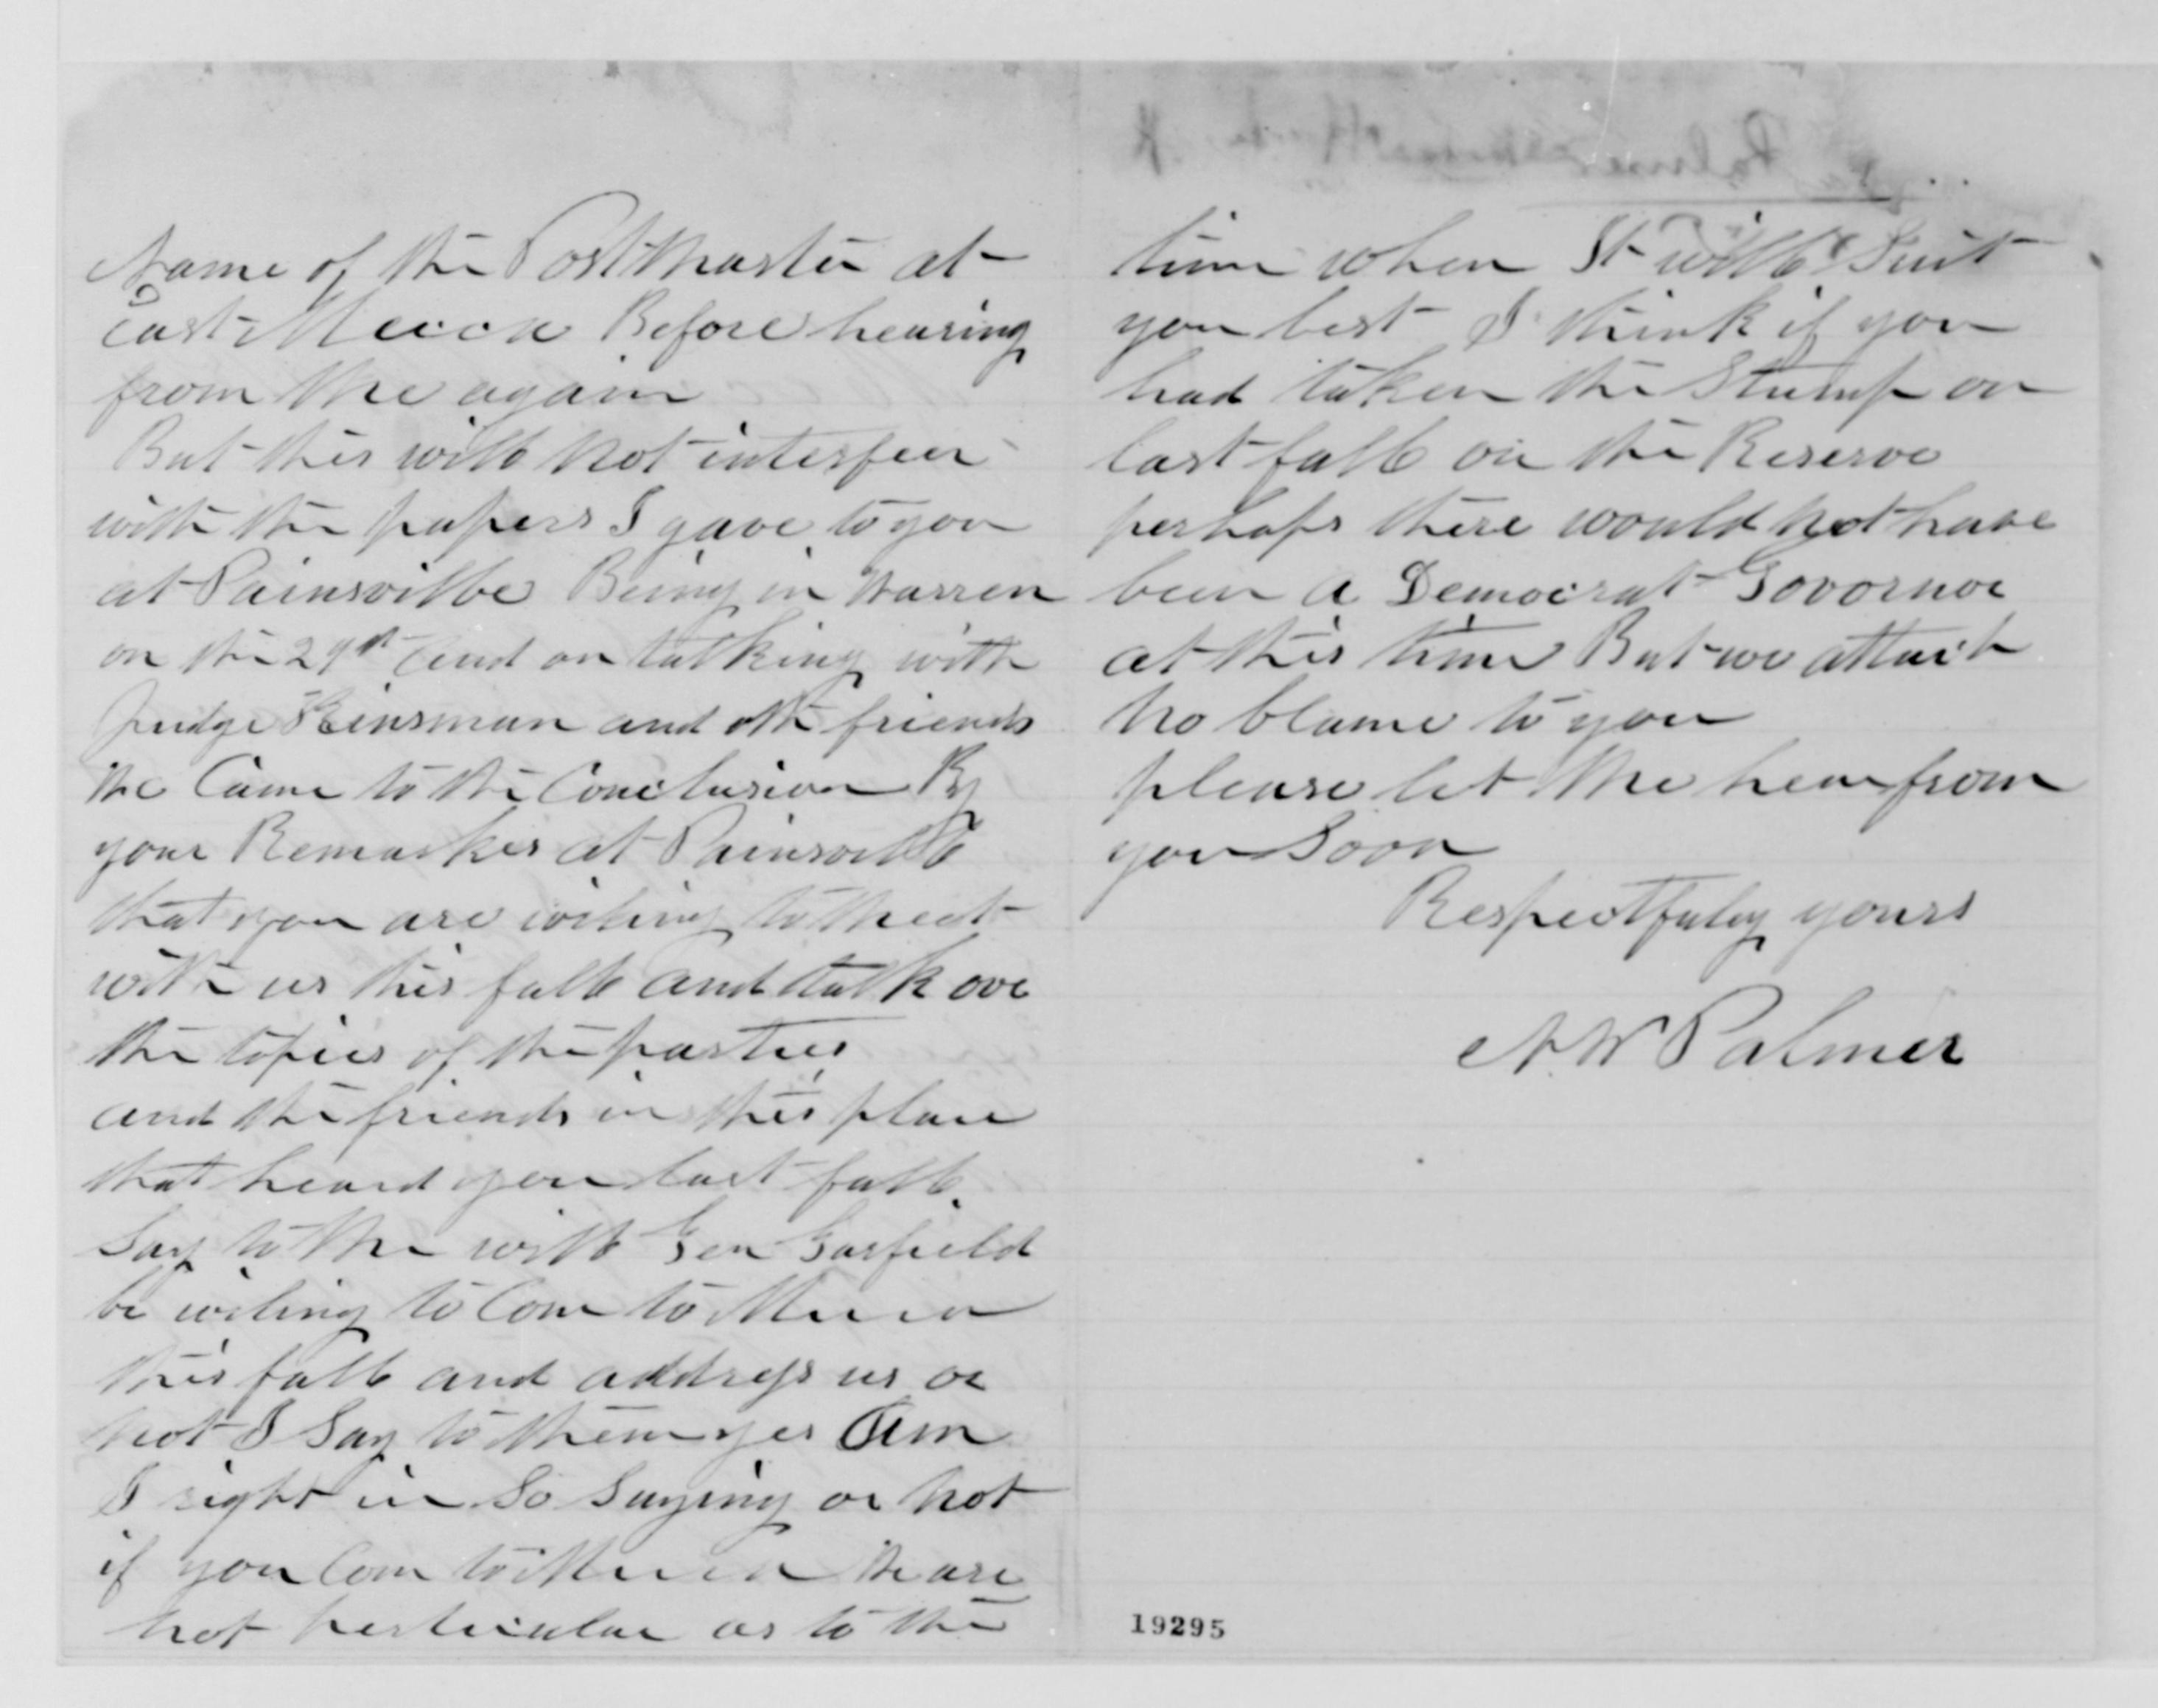 Name of the Post Master at
East Mecca Before hearing
from Me again
But this will Not interfeer
with the papers I gave to you
at Painsville Being in Warren
on the 29st and on talking with
Judge Kinsman and oth friends
the Came to the Conclusion By
your Remarkes at Painsville
that you are wiling to Meet
with us this fall and talk ove
the topics of the parties
and the friends in this place
that heard you last fall
Say to Me will Gen Garfield
be wiling to Com to Mecca
this fall and address us or
Not I Say to them yes Am
I right in So Saying or Not
if you Com to Mecca the are
Not perticular as to the
time when It will Suit
you best I think if you
had taken the Stump on
last fall on the Reserve
perhaps there would Not have
been a Democrat Govornor
at this time But we attach
No blame to you
please let Me hear from
you Soon
Respectfuly yours
A W Palmer
19295